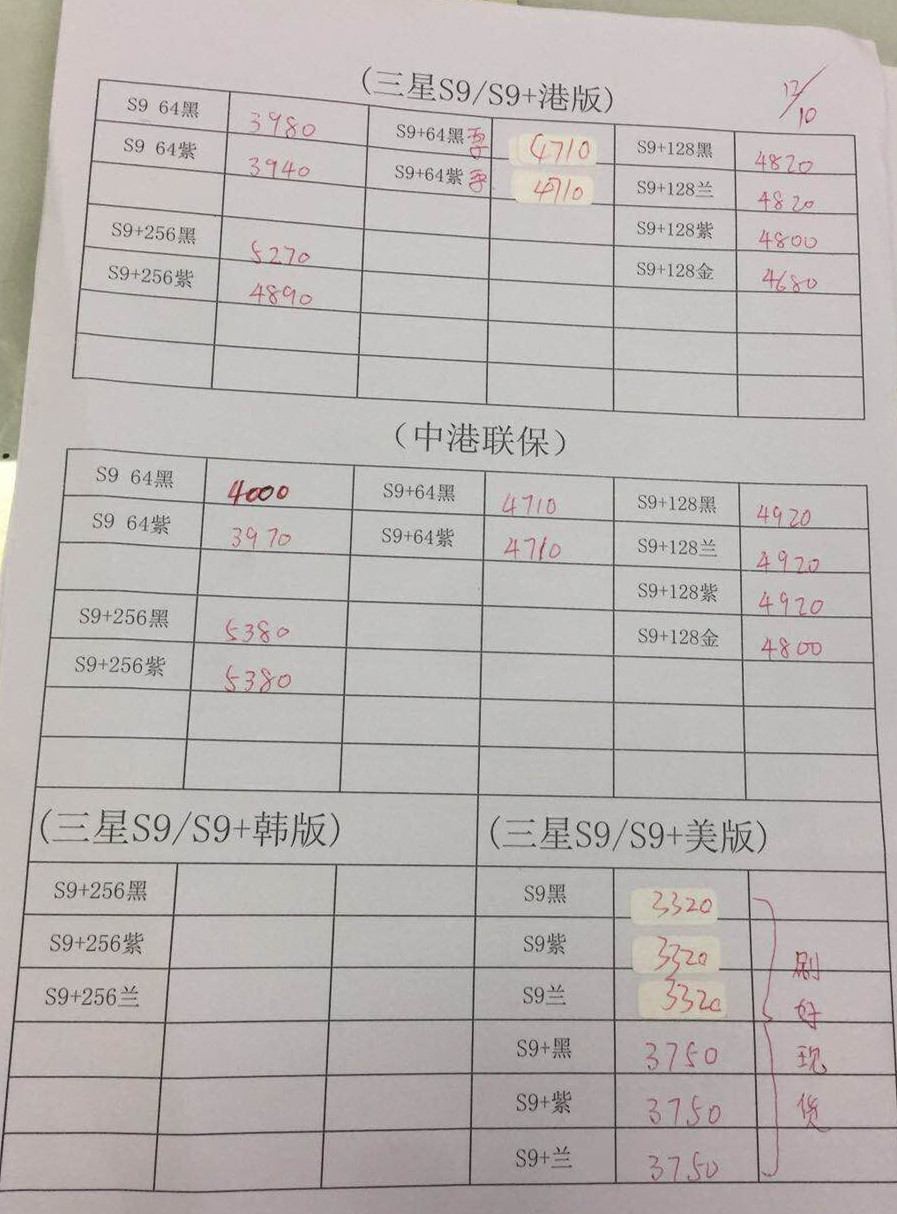 (三星S9/S9+港版)
12/10
S9 64黑 3980 S9+64黑 4710 S9+128黑 4820
S9 64紫 3940 S9+64紫 4710 S9+128兰 4820
S9+128紫 4800
S9+256黑 5270 S9+128金 4680
S9+256紫 4890
(中港联保)
S9 64黑 4000 S9+64黑 4710 S9+128黑 4920
S9 64紫 3970 S9+64紫 4710 S9+128兰 4920
S9+128紫 4920
S9+256黑 5380 S9+128金 4800
S9+256紫 5380
(三星S9/S9+韩版) (三星S9/S9+美版)
S9+256黑 S9黑 3320
S9+256紫 S9紫 3320
S9+256兰 S9兰 3320
S9+黑 3750
S9+紫 3750
S9+兰 3750
刷好现货